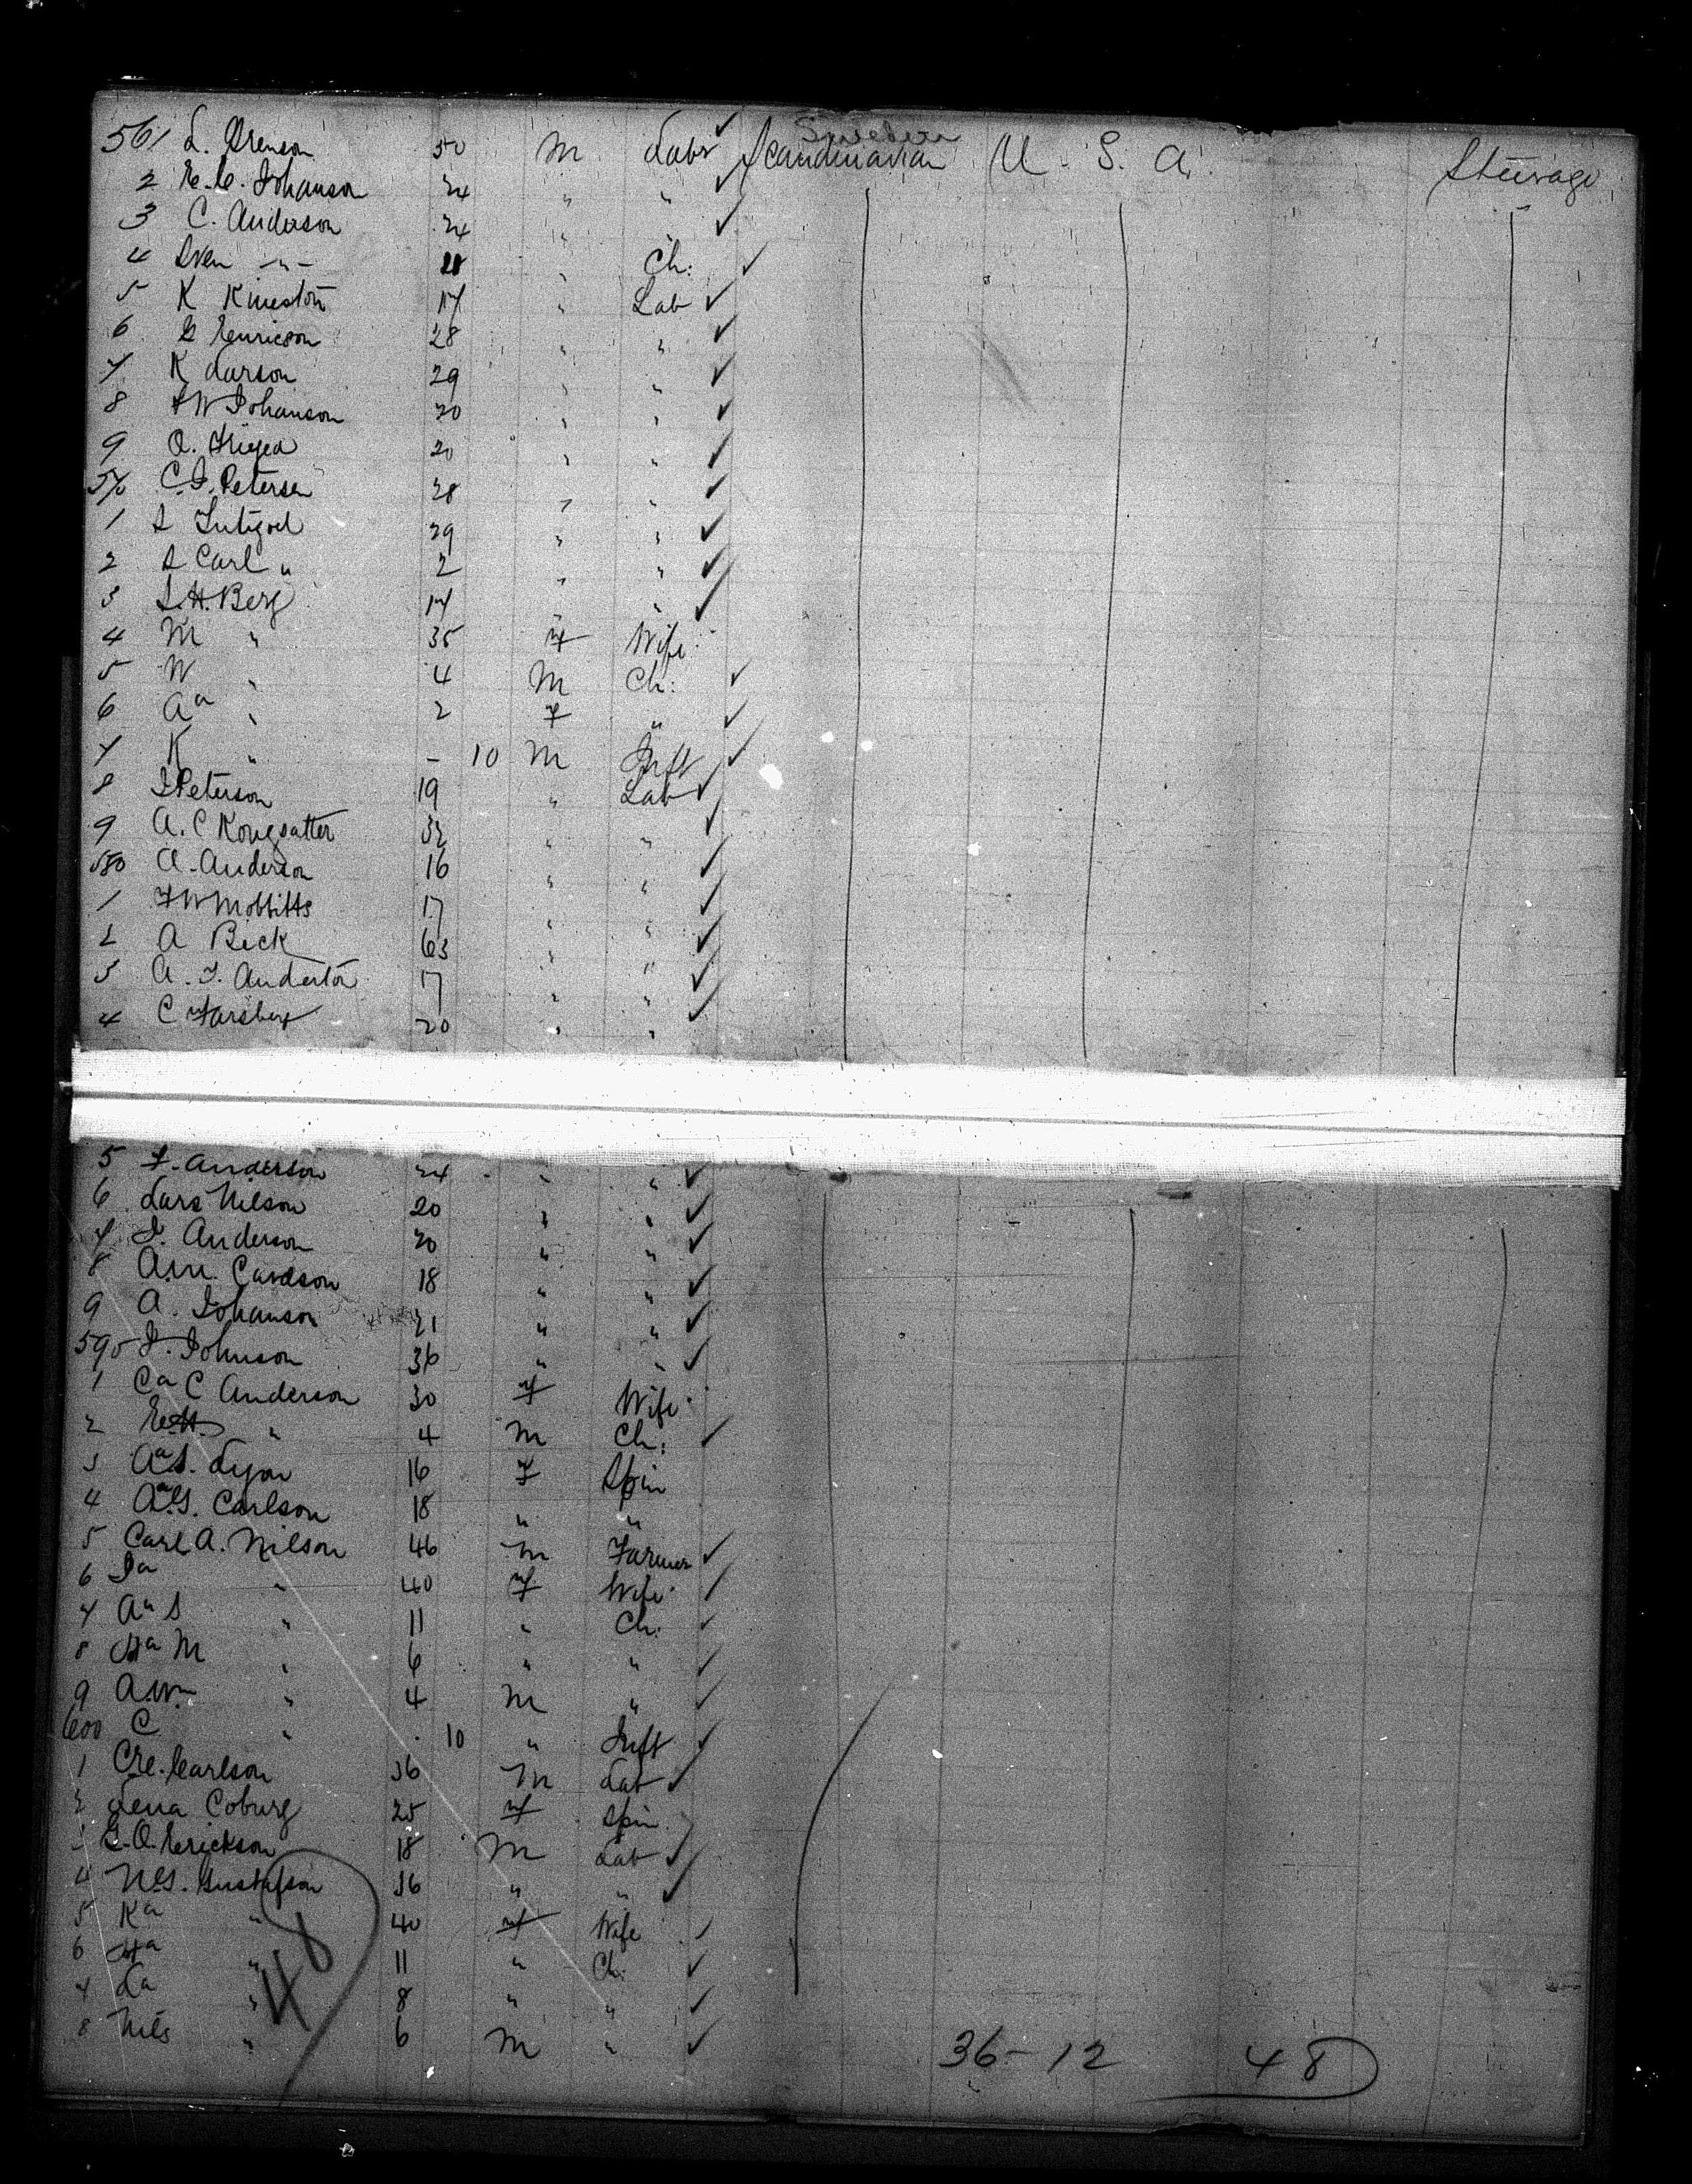 Sweden
561 L. 50 M Labr Scandinavian U. S. A. Steerage
2 E. C. Johanson 24 " "
3 C. Anderson 24 " "
4 Sven -"- " Ch:
5 K 17 " Lab
6 G Henricson 28 " "
7 K Larson 29 " "
8 Johanson 20 " "
9 20 " "
570 C. J. Petersen 28 " "
1 29 " "
2 Carl " 2 " "
3 Berg 17 " "
4 M " 35 F Wife
5 W " 4 M Ch:
6 Aa " 2 F "
7 K " - 10 M Inft
8 Peterson 19 " Lab
9 A. C 32 " "
580 A. Anderson 16 " "
1 17 " "
2 A Beck 63 " "
3 A. J. 17 " "
4 C Forsberg 20 " "
5 F. Anderson 24 " "
6 Lars Nilson 20 " "
7 J. Anderson 20 " "
8 18 " "
9 A. Johanson 21 " "
590 J. Johnson 36 " "
1 Ca C Anderson 30 F Wife
2 " 4 M Ch:
3 Aa S. 16 F Spin
4 Aa G. Carlson 18 " "
5 Carl A. Nilson 46 M Farmer
6 Ja " 40 F Wife
7 Aa S " 11 " Ch:
8 Ha M " 6 " "
9 A Wm " 4 M "
600 C " 10 " Inft
1 Carlson 36 M Lab
2 Lena Coburg 25 F Spin
3 G. O. Erickson 18 M Lab
4 N. G. Gustafson 36 " "
5 Ka " 40 F Wife
6 Ha " 11 " Ch:
7 La " 8 " "
8 Nils " 6 M "
48
36-12 48